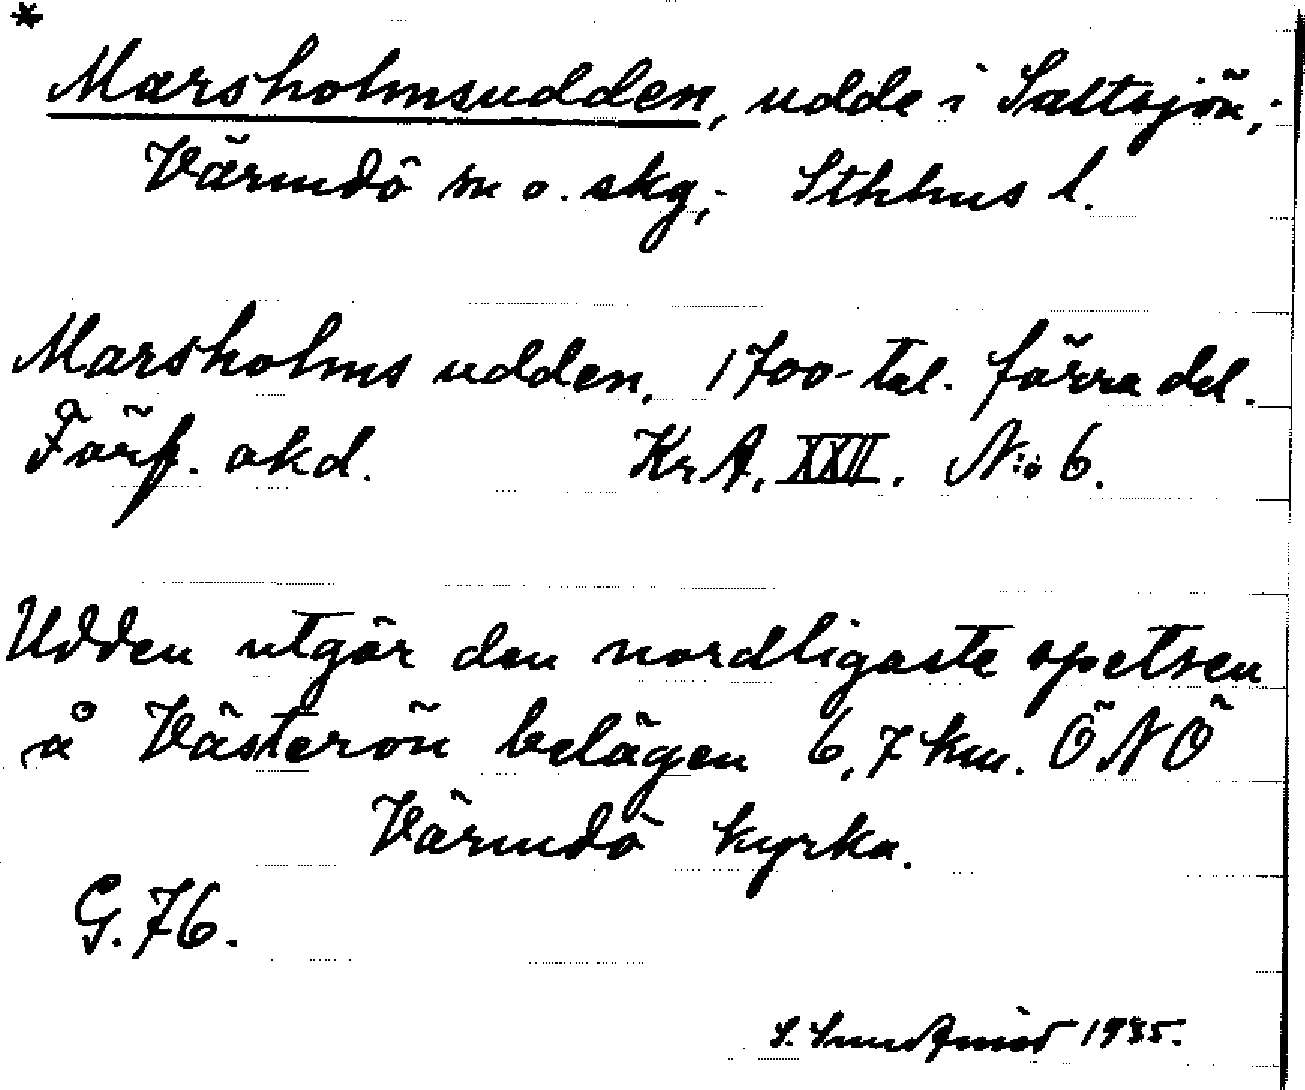 *
Marsholmsudden, udde i Saltsjön,
Värmdö sn o. skg, Sthlms l.
Marsholms udden, 1700-tal. förra del.
Förf. okd. Kr A, XXII. N:o 6.
Udden utgör den nordligaste spetsen
å Västerön belägen 6,7 km. ÖNÖ
Värmdö kyrka.
G. 76.
S. Sundqvist 1935.